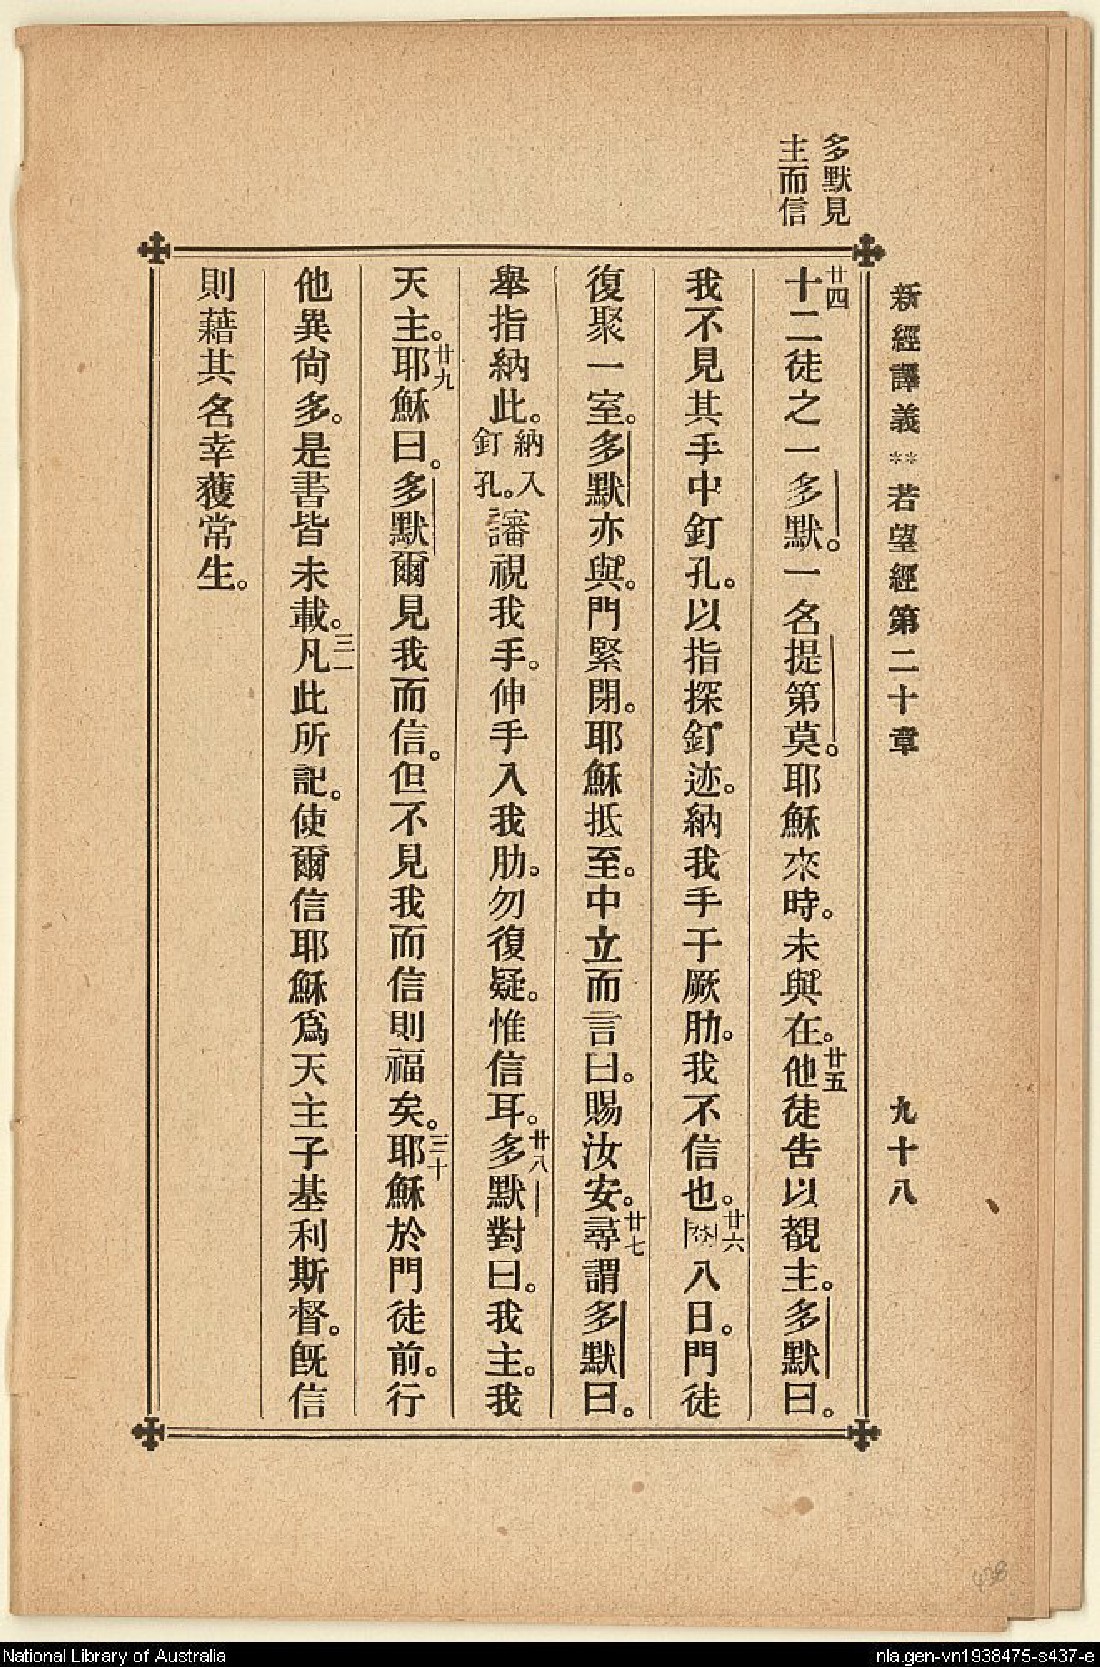 多默見
主而信
新經譯義**若望經第二十章 九十八
廿四十二徒之一多默。一名提第莫。耶穌來時。未與在。廿五他徒告以覩主。多默曰。
我不見其手中釘孔。以指探釘迹。納我手于厥肋。我不信也。廿六閱八日。門徒
復聚一室。多默亦與。門緊閉。耶穌抵至。中立而言曰。賜汝安。廿七尋謂多默曰。
舉指納此。納入釘孔。審視我手。伸手入我肋。勿復疑。惟信耳。廿八多默對曰。我主。我
天主。廿九耶穌曰。多默爾見我而信。但不見我而信則福矣。三十耶穌於門徒前。行
他異尙多。是書皆未載。三一凡此所記。使爾信耶穌爲天主子基利斯督。旣信
則藉其名幸獲常生。
438
National Library of Australia
nla.gen-vn1938475-s437-e